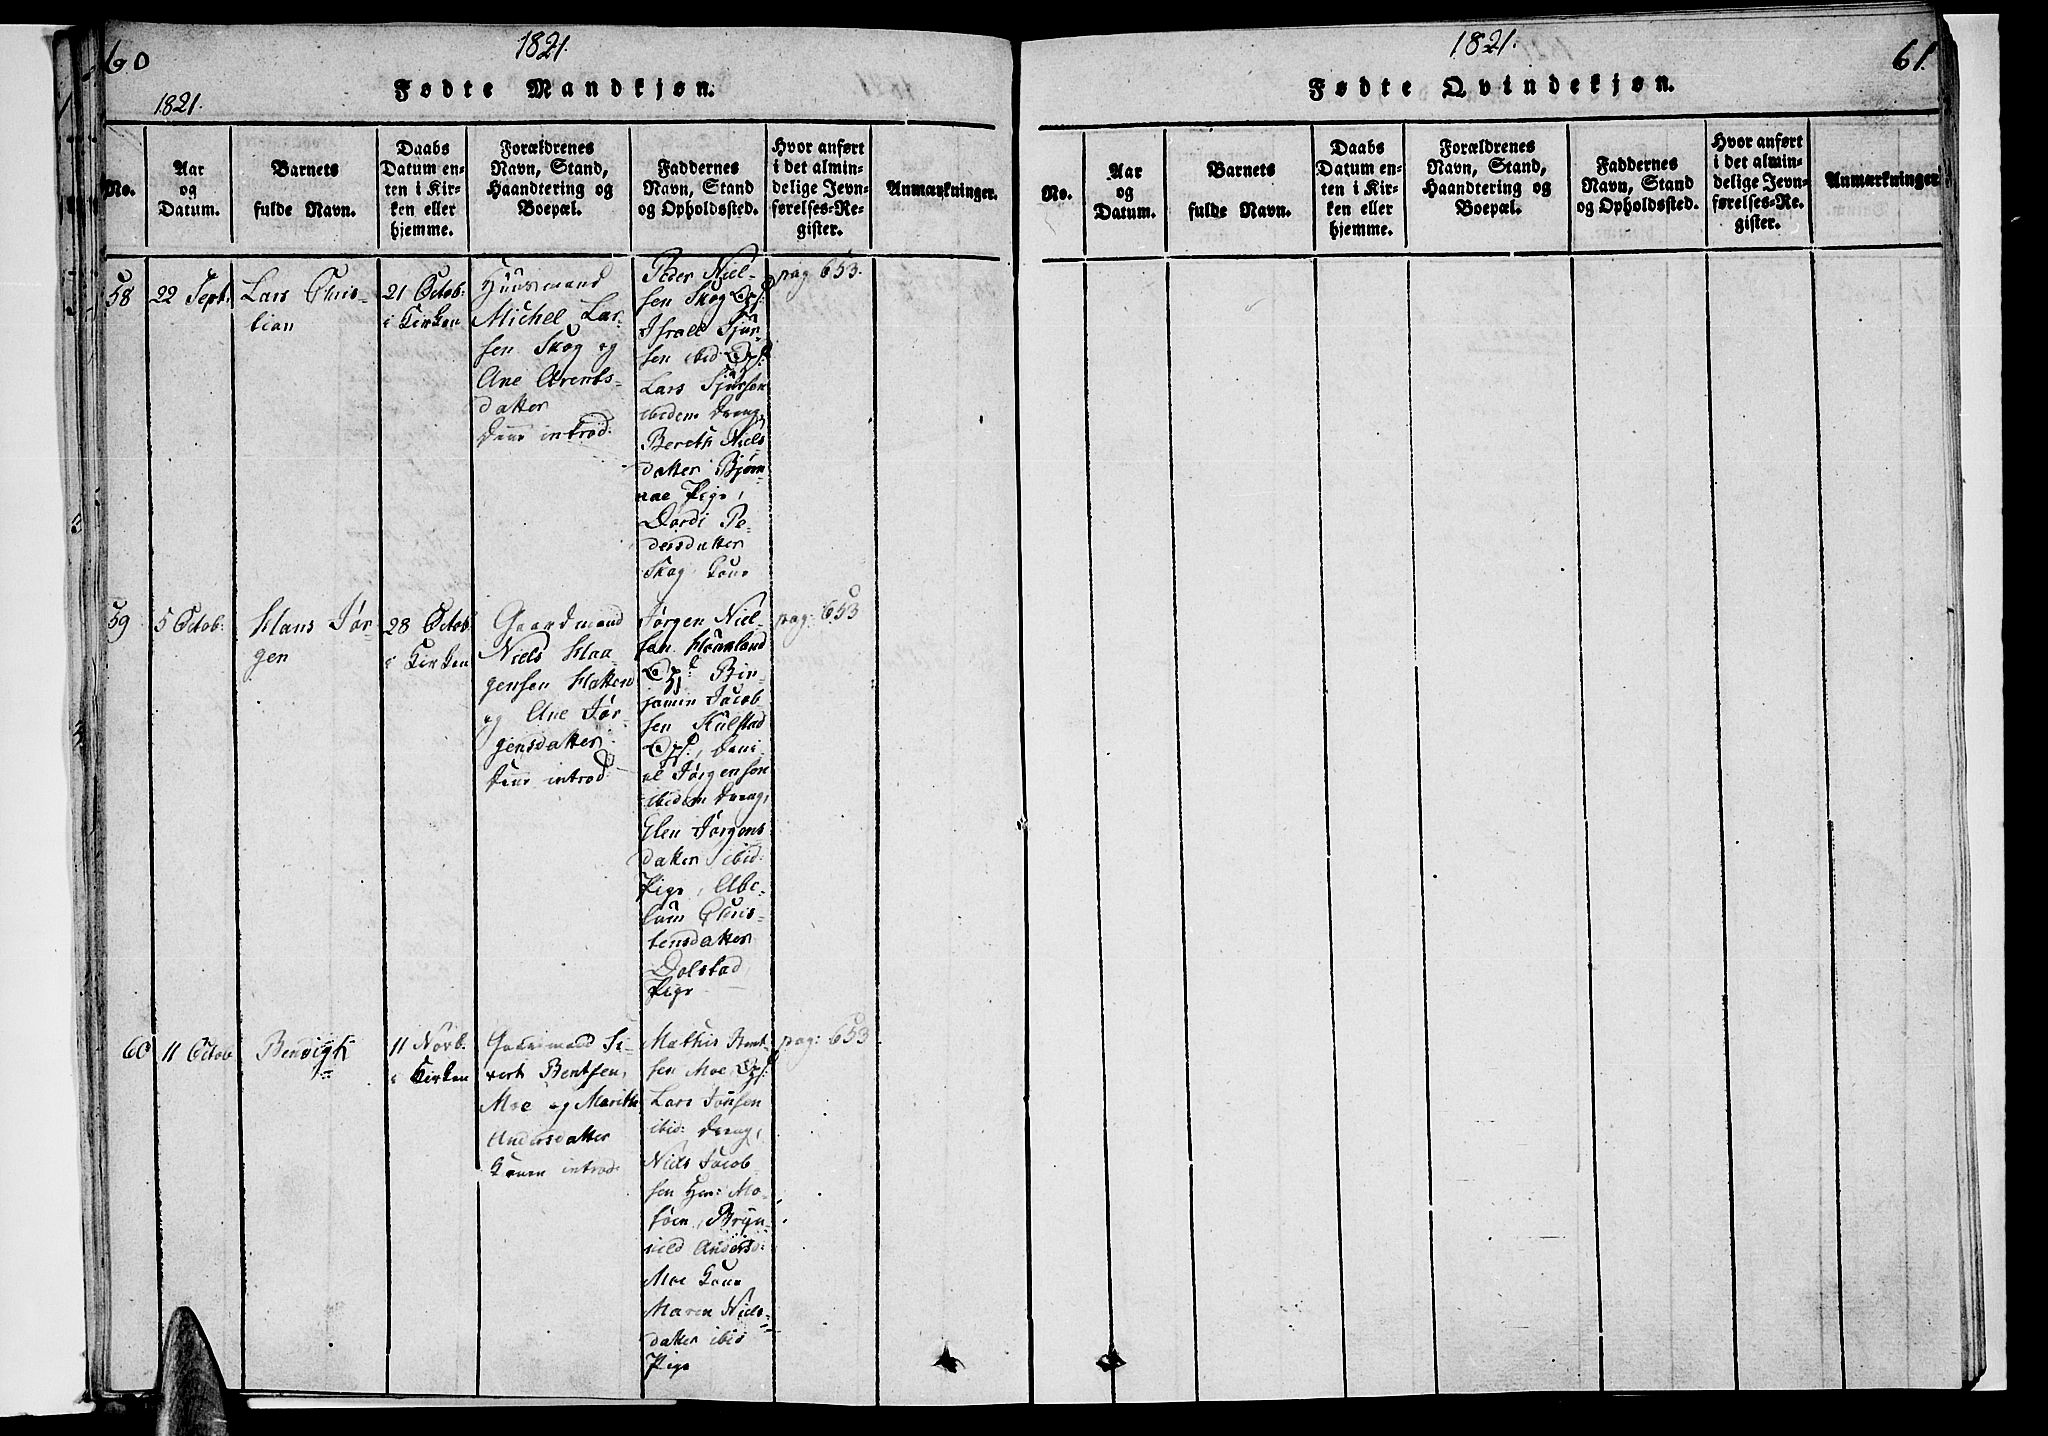 60
1821.
1821.
Fødte Mandkjøn.
No.
Aar
og
Datum.
Barnets
fulde Navn.
Daabs
Datum en-
ten i Kir-
ken eller
hjemme.
Forældrenes
Navn, Stand,
Haandtering og
Boepæl.
Faddernes
Navn, Stand
og Opholdssted.
Hvor anført
i det almin-
delige Jevn-
førelses-Re-
gister.
Anmærkninger.
58
22 Sept.
Lars Chris-
tian
21 Octob:
i Kirken
Huusmand
Michel Lar-
sen Skog og
Ane Arents-
datter
introd:
Peder Niel-
sen Skog
Israel Sjur-
sen ibid:
Lars Sjursen
ibidem Dreng,
Bereth Niels
datter Bjørn-
aae Pige,
Dordi Pe-
dersdatter
Skog Kone
pag: 653.
59
5 Octob:
Hans Jør-
gen
28 Octob:
i Kirken
Gaardmand
Niels Haa-
gensen Hatten
og Ane Jør-
gensdatter
introd:
Jørgen Niel-
sen
Ben-
jamin Jacob
sen Kulstad
Dani-
el Jørgensen
ibidem Dreng,
Elen Jørgens
datter ibid:
Pige, Abe-
lam Chris-
tensdatter
Dolstad,
Pige
pag: 653
60
11 Octob
Bendigt
11 Novb.
i Kirken
Gaardmand Si-
vert Bentsen,
Moe og Marith
Andersdatter
Konen introd:
Mathis Bent-
sen Moe
Lars Jonsen
ibid: Dreng,
Niels Jacob-
sen Mo-
søen, Bryn-
hild Andersd:
Moe Kone
Maren Niels-
datter ibid
Pige
pag: 653
1821.
61.
Fødte Qvindekjøn.
No.
Aar
og
Datum.
Barnets
fulde Navn.
Daabs
Datum en-
ten i Kir-
ken eller
hjemme.
Forældrenes
Navn, Stand,
Haandtering og
Boepæl.
Faddernes
Navn, Stand
og Opholdssted.
Hvor anført
i det almin-
delige Jevn-
førelses-Re-
gister.
Anmærkninger